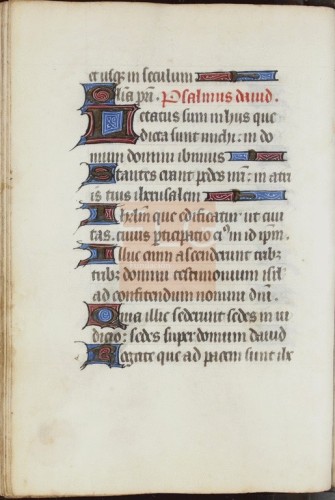 et usq3 in seculum
Glia pri. Psalmus david.
Letatus sum in hys que
dicta sunt michi: in do
mum domini ibimus
Stantes erant pedes nri: in atri
is tuis iherusalem
Iherlm que edificatur ut civi
tas. cuius participatio ei9 in id ipm.
Illuc enim ascenderunt trib3
trib3 domini testimonium isrl
ad confitendum nomini dni.
Quia illic sederunt sedes in iu
dicio: sedes super domum david
Rogate que ad pacem sunt ihr